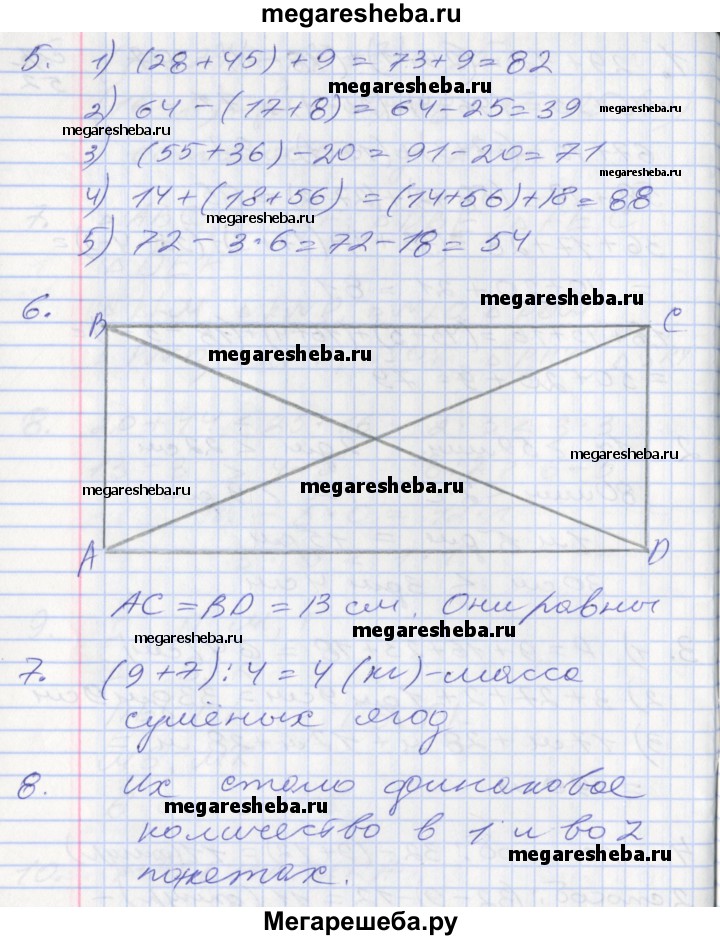 megaresheba.ru
5. 1) (28+45)+9=73+9=82
megaresheba.ru
2) 64-(17+8)=64-25=39 megaresheba.ru
megaresheba.ru
3) (55+36)-20=91-20=71
megaresheba.ru
4) 14+(18+56)=(14+56)+18=88
megaresheba.ru
5) 72-3·6=72-18=54
megaresheba.ru
6.
B C
megaresheba.ru
megaresheba.ru
megaresheba.ru
megaresheba.ru
A D
AC=BD=13 см. Они равны
megaresheba.ru
megaresheba.ru
7. (9+7):4=4 (кг)-масса
megaresheba.ru
сушёных ягод
8. Их стало одинаковое
megaresheba.ru
количество в 1 и во 2
megaresheba.ru
пакетах.
Мегарешеба.ру